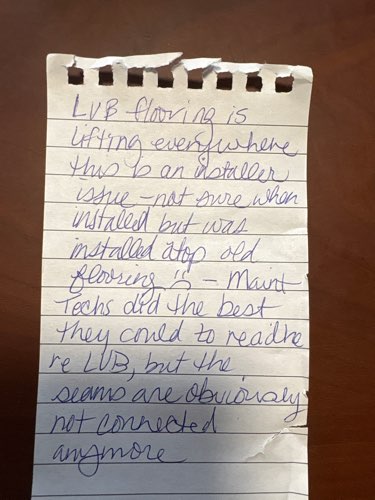 LVB flooring is
lifting everywhere
this is an installer
issue - not sure when
installed but was
installed atop old
flooring :( - Maint
Techs did the best
they could to readhe
re LVB, but the
seams are obviously
not connected
anymore